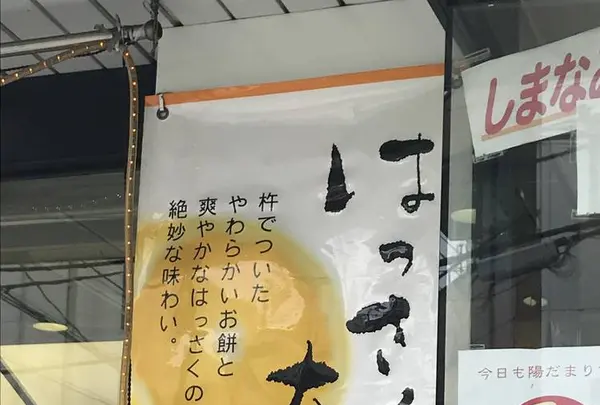 はっさく
杵でついた
やわらかいお餅と
爽やかなはっさくの
絶妙な味わい。
しまな
今日も陽だまり